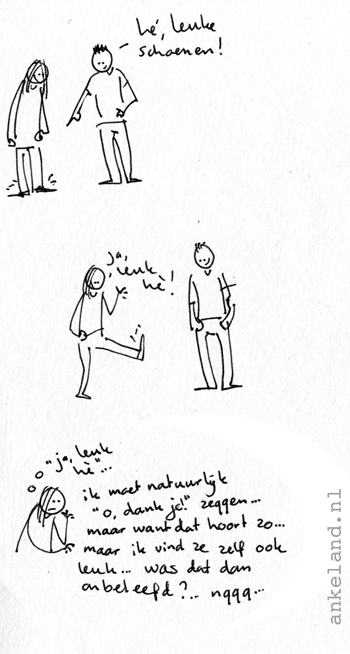 hé, leuke
schoenen!
ja,
leuk
hè!
"ja, leuk
hè"...
ik moet natuurlijk
"o, dank je!" zeggen...
maar want dat hoort zo...
maar ik vind ze zelf ook
leuk... was dat dan
onbeleefd?.. nggg...
ankeland.nl